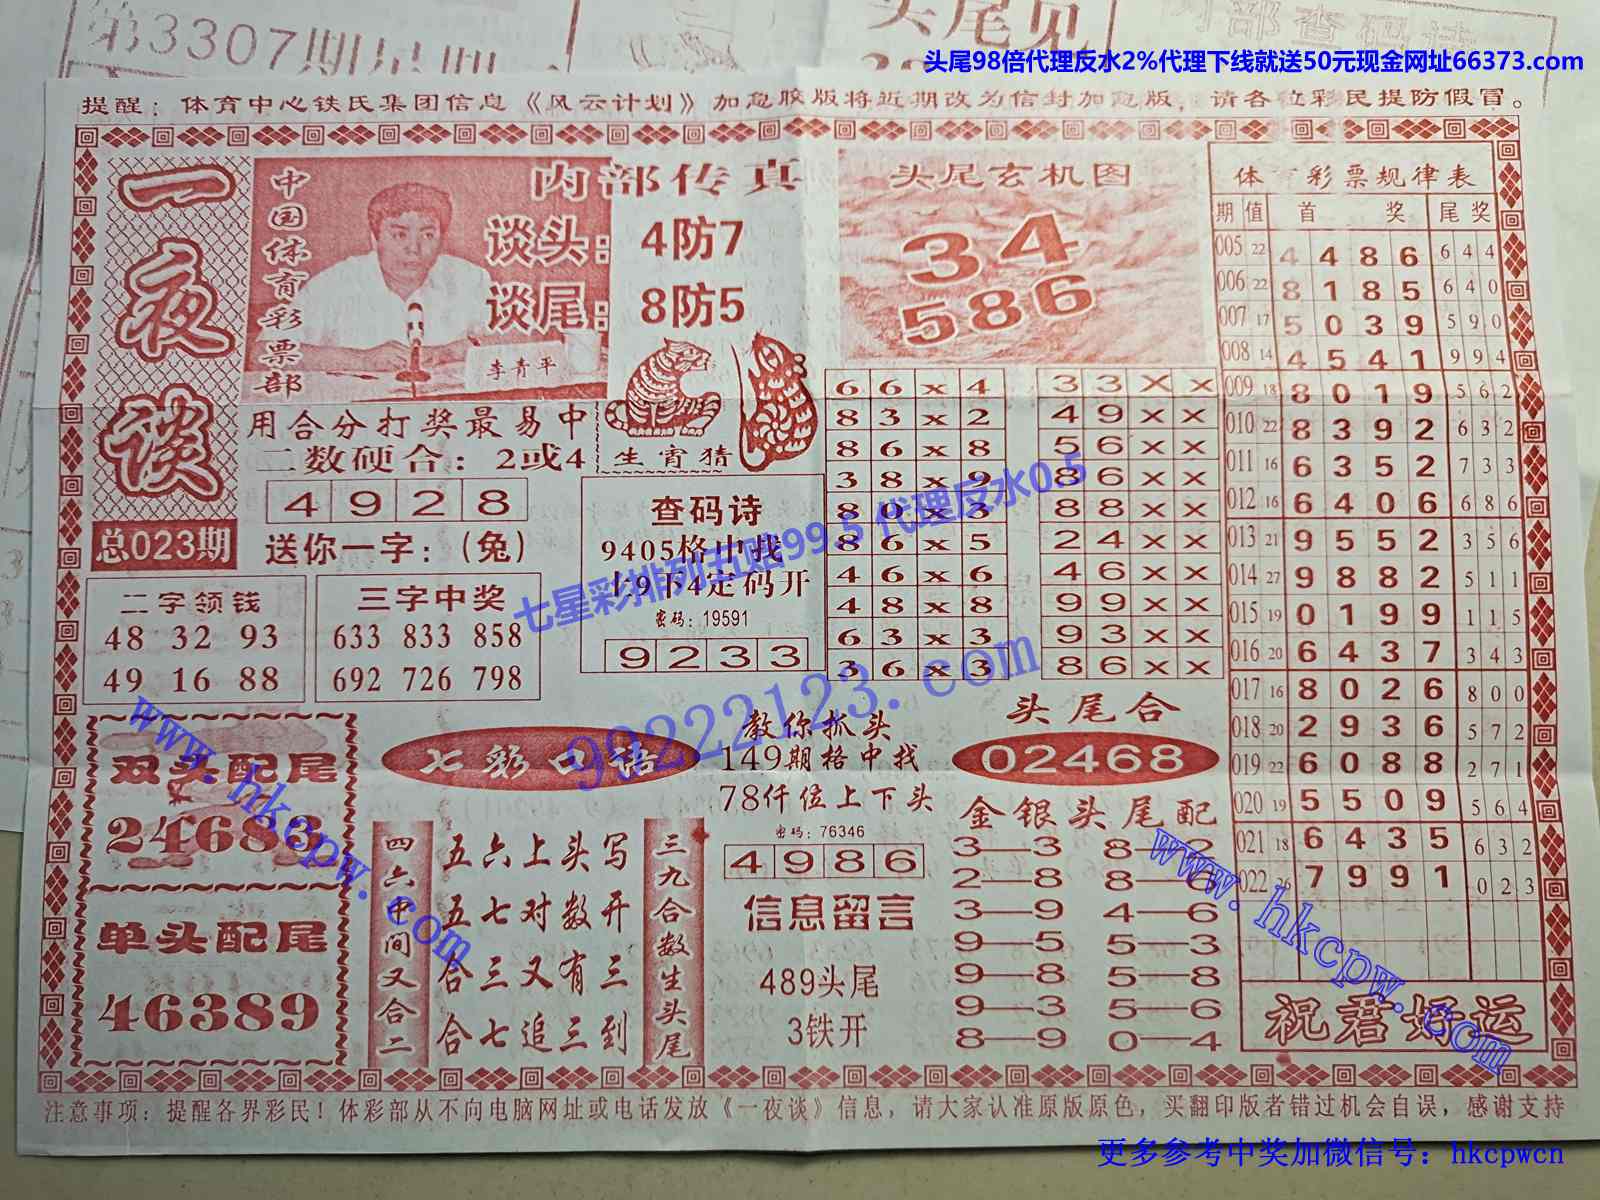 第3307期星期
头尾见
内部查码诗
头尾98倍代理反水2%代理下线就送50元现金网址66373.com
提醒：体育中心铁氏集团信息《风云计划》加急胶版将近期改为信封加急版，请各位彩民提防假冒。
一夜谈
总023期
中国体育彩票部
内部传真
谈头：4防7
谈尾：8防5
李青平
用合分打奖最易中
二数硬合：2或4
4 9 2 8
送你一字：(兔)
生宵猜
二字领钱
48 32 93
49 16 88
三字中奖
633 833 858
692 726 798
查码诗
9405格中找
上9下4定码开
密码：19591
9 2 3 3
头尾玄机图
34
586
6 6 x 4
8 3 x 2
8 6 x 8
3 8 x 9
8 0 x 3
8 6 x 5
4 6 x 6
4 8 x 8
6 3 x 3
3 6 x 3
3 3 X X
4 9 X X
5 6 X X
8 6 X X
8 8 X X
2 4 X X
4 6 X X
9 9 X X
9 3 X X
8 6 X X
体育彩票规律表
期 值 首 奖 尾 奖
005 22 4 4 8 6 6 4 4
006 22 8 1 8 5 6 4 0
007 17 5 0 3 9 5 9 0
008 14 4 5 4 1 9 9 4
009 18 8 0 1 9 5 6 2
010 22 8 3 9 2 6 3 2
011 16 6 3 5 2 7 3 3
012 16 6 4 0 6 6 8 6
013 21 9 5 5 2 3 5 6
014 27 9 8 8 2 5 1 1
015 19 0 1 9 9 1 1 5
016 20 6 4 3 7 3 4 3
017 16 8 0 2 6 8 0 0
018 20 2 9 3 6 5 7 2
019 22 6 0 8 8 2 7 1
020 19 5 5 0 9 5 6 4
021 18 6 4 3 5 6 3 2
022 26 7 9 9 1 0 2 3
祝君好运
双头配尾
24683
单头配尾
46389
七彩口语
四六中间又合二
五六上头写
五七对数开
合三又有三
合七追三到
三九合数生头尾
教你抓头
149期格中找
78仟位上下头
密码：76346
4 9 8 6
信息留言
489头尾
3铁开
头尾合
02468
金银头尾配
3—3 8—2
2—8 8—6
3—9 4—6
9—5 5—3
9—8 5—8
9—3 5—6
8—9 0—4
七星彩排列五赔99.5 代理反水0.5
99222123.com
www.hkcpw.com
www.hkcpw.com
注意事项：提醒各界彩民！体彩部从不向电脑网址或电话发放《一夜谈》信息，请大家认准原版原色，买翻印版者错过机会自误，感谢支持
更多参考中奖加微信号：hkcpwcn